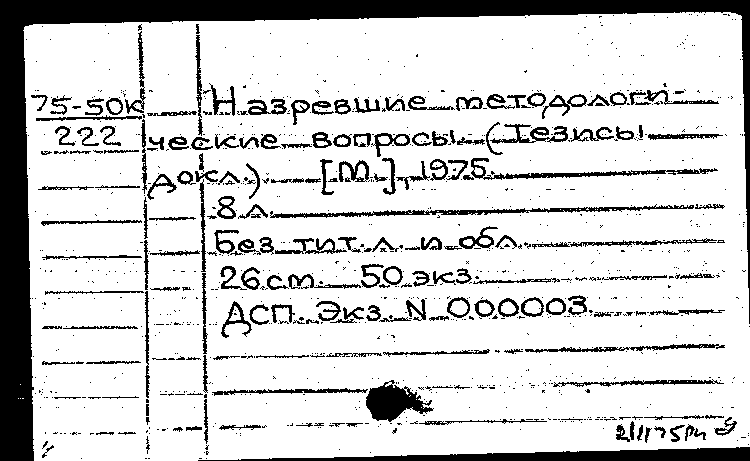 75-50к Назревшие методологи-
222 ческие вопросы. (Тезисы
докл.). [М.], 1975.
8 л.
Без тит. л. и обл.
26 см. 50 экз.
ДСП. Экз. N 000003.